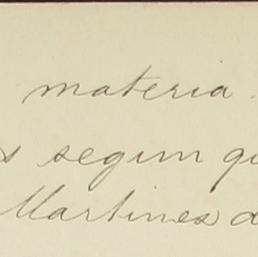 materia.
s segun qu
Martines d